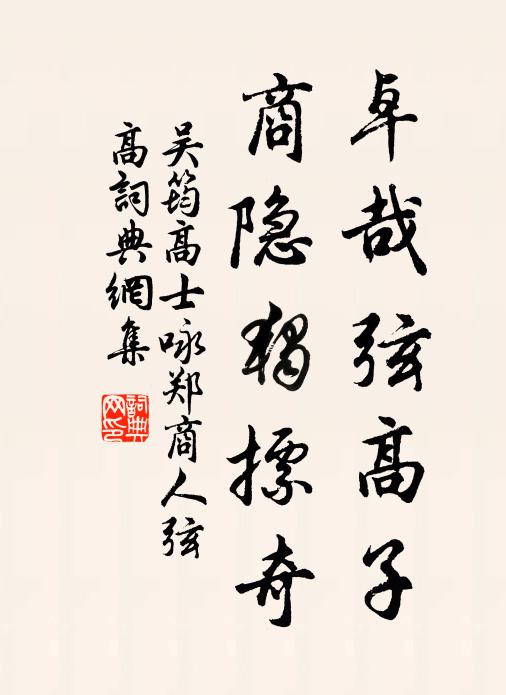 卓哉弦高子
商隐獨摽奇
吴筠高士咏郑商人弦
高詞典網集
詞典网印